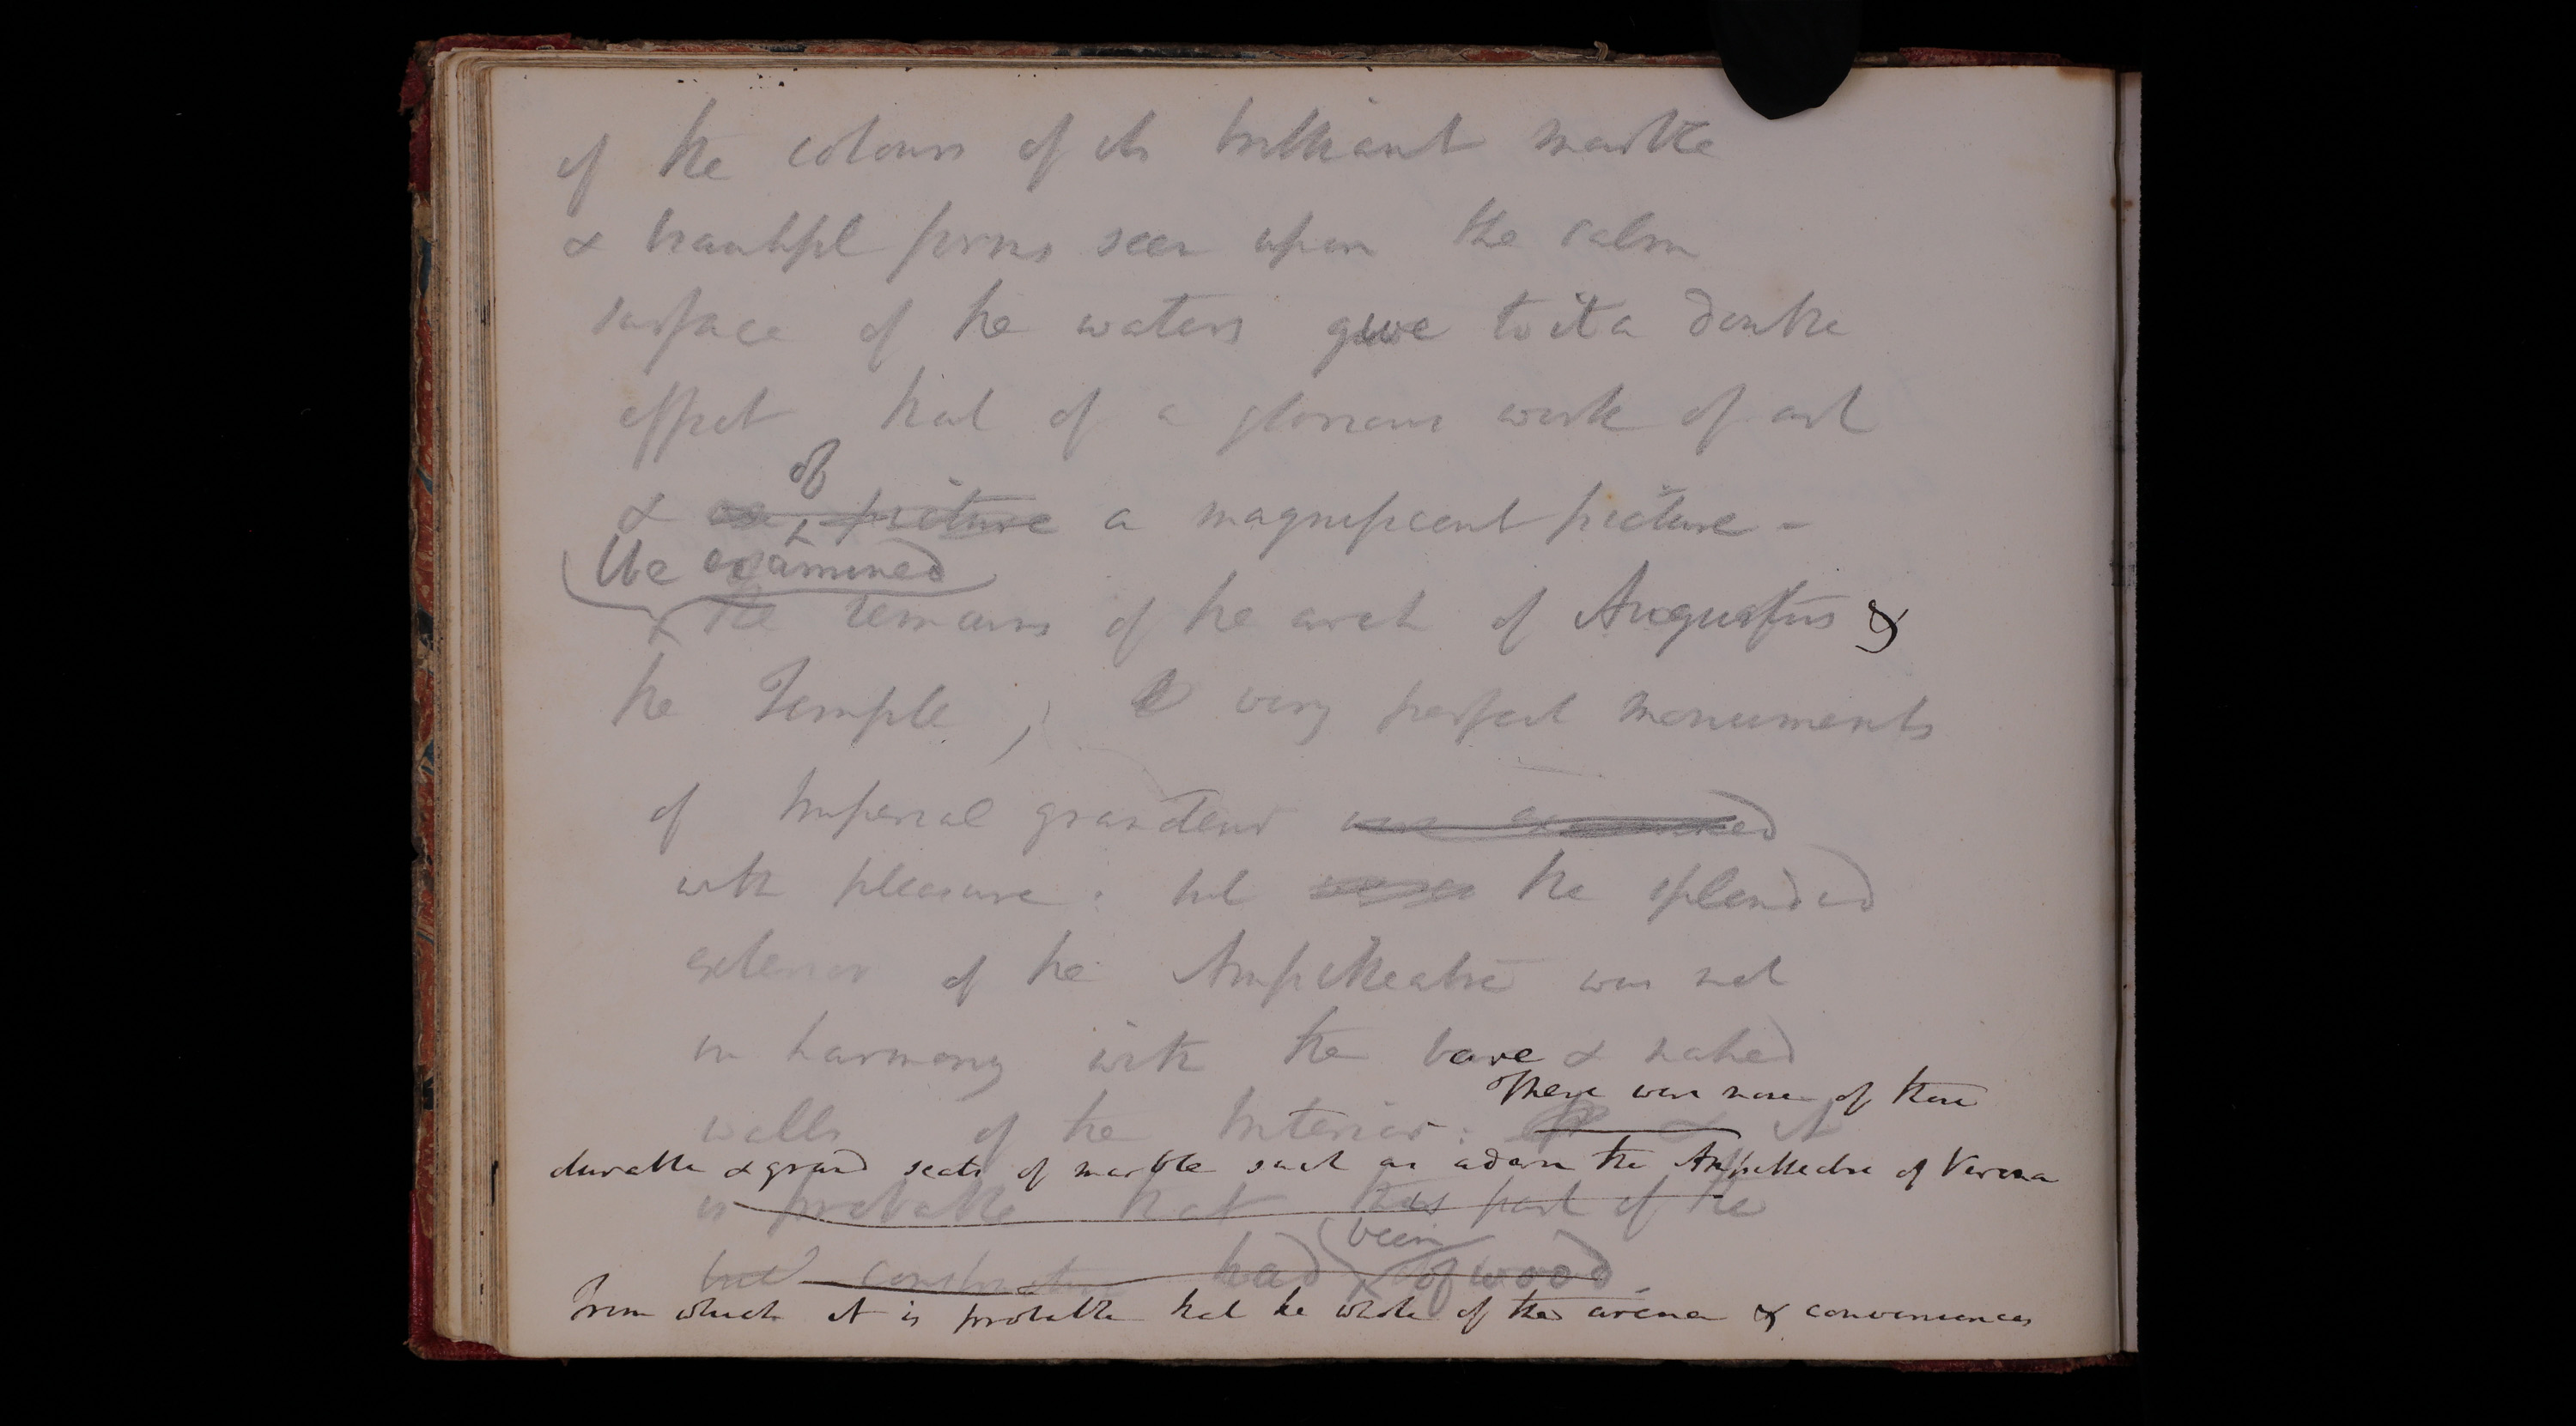 of the colours of its brilliant marble
& beautiful forms seen upon the calm
surface of the waters give to it a double
effect that of a glorious work of art
of
& as picture a magnificent picture -
We examined
& the remains of the arch of Augustus &
the Temple; very perfect monuments
of Imperial grandeur were examined
with pleasure: but the splendid
exterior of the Ampitheatre was not
in harmony with the bare & naked
There were none of those
walls of the Interior: & it
durable & grand seats of marble such as adorn the Ampitheatre of Verona
is probable that this part of the
been
construction had of wood
From which it is probable that the whole of the arena & conveniences